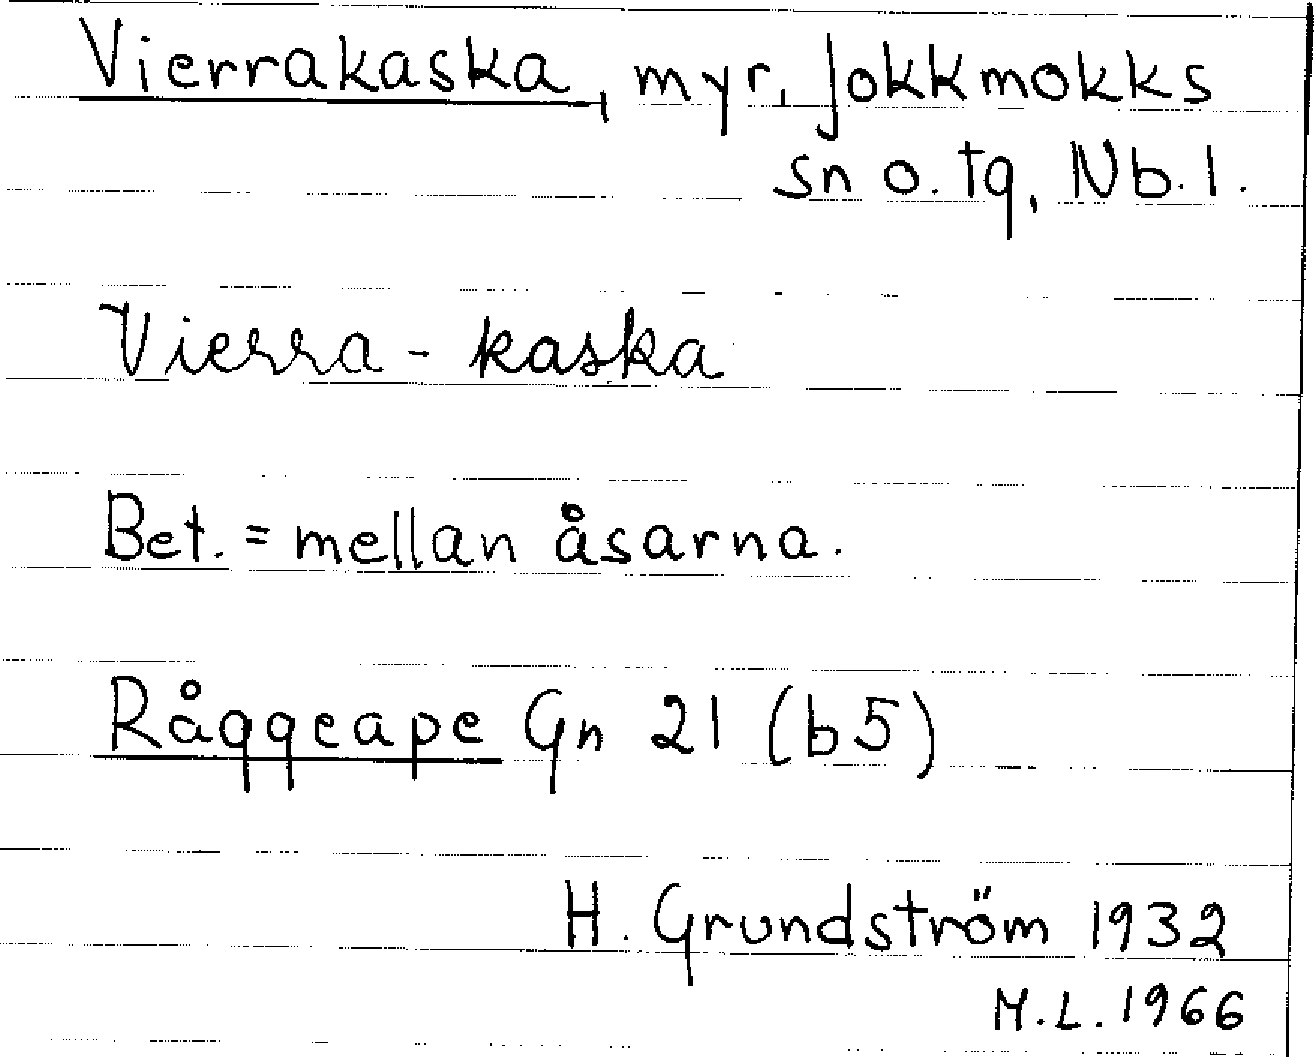 Vierrakaska, myr, Jokkmokks
sn o. tg, Nb. l.
Vierra - kaska
Bet. = mellan åsarna.
Råggeape Gn 21 (b5)
H. Grundström 1932
M.L. 1966